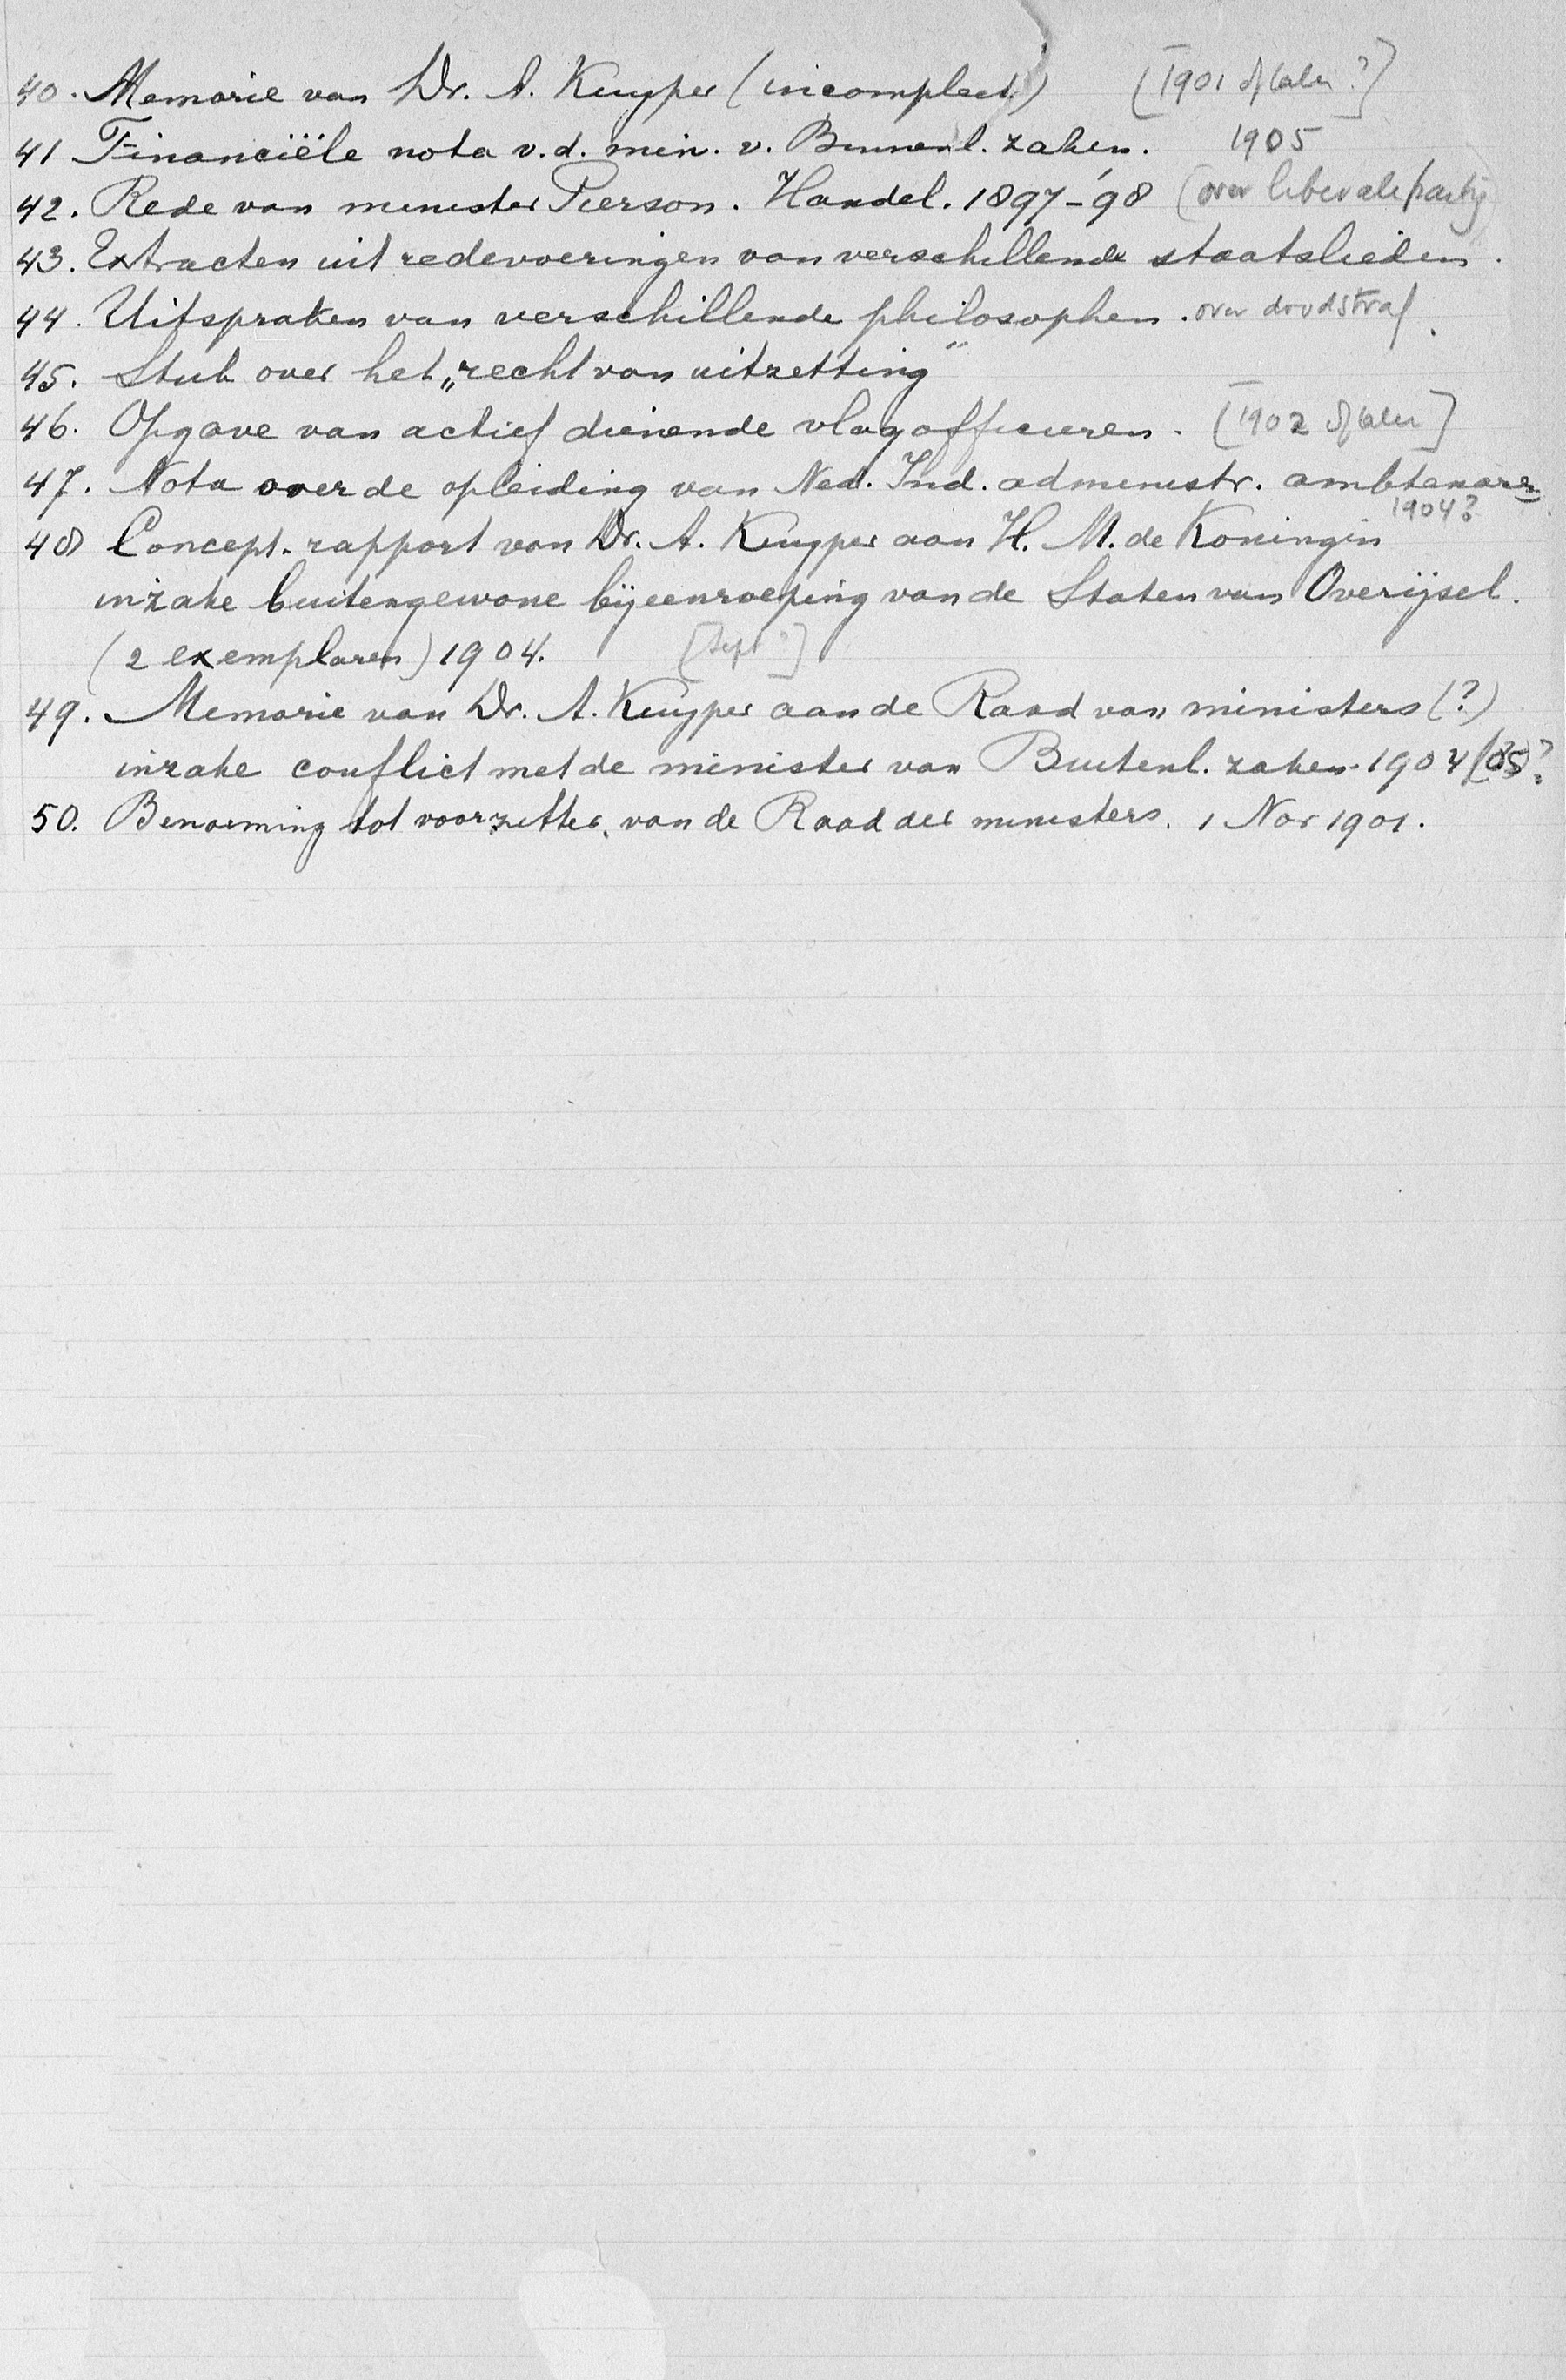 40. Memorie van Dr. A. Kuyper (incompleet.) [1901 of later?]
41 Financiële nota v.d. min. v. Binnenl. zaken. 1905
42. Rede van minister Pierson. Handel. 1897-'98 (over liberale partij)
43. Extracten uit redevoeringen van verschillende staatslieden.
44. Uitspraken van verschillende philosophen. over doodstraf.
45. Stuk over het „recht van uitzetting"
46. Opgave van actief dienende vlagofficieren. [1902 of later]
47. Nota over de opleiding van Ned. Ind. administr. ambtenaren
1904?
48 Concept-rapport van Dr. A. Kuyper aan H. M. de Koningin
inzake buitengewone bijeenroeping van de Staten van Overijsel.
(2 exemplaren) 1904. [Sept?]
49. Memorie van Dr. A. Kuyper aan de Raad van ministers (?)
inzake conflict met de minister van Buitenl. zaken. 1904 (05)?
50. Benoeming tot voorzitter van de Raad der ministers. 1 Nov 1901.